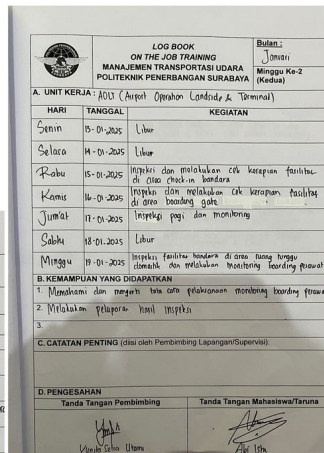 LOG BOOK
ON THE JOB TRAINING
MANAJEMEN TRANSPORTASI UDARA
POLITEKNIK PENERBANGAN SURABAYA
Bulan :
Januari
Minggu Ke-2
(Kedua)
A. UNIT KERJA : AOLT (Airport Operation Landside & Terminal)
HARI TANGGAL KEGIATAN
Senin 13 - 01 - 2025 Libur
Selasa 14 - 01 - 2025 Libur
Rabu 15 - 01 - 2025 Inspeksi dan melakukan cek kerapian fasilitas
di area check-in bandara
Kamis 16 - 01 - 2025 Inspeksi dan melakukan cek kerapian fasilitas
di area boarding gate
Jum'at 17 - 01 - 2025 Inspeksi pagi dan monitoring
Sabtu 18 - 01 - 2025 Libur
Minggu 19 - 01 - 2025 Inspeksi fasilitas bandara di area ruang tunggu
domestik dan melakukan monitoring boarding pesawat
B. KEMAMPUAN YANG DIDAPATKAN
1. Memahami dan mengerti tata cara pelaksanaan monitoring boarding pesawa
2. Melakukan pelaporan hasil inspeksi
3.
C. CATATAN PENTING (diisi oleh Pembimbing Lapangan/Supervisi):
D. PENGESAHAN
Tanda Tangan Pembimbing Tanda Tangan Mahasiswa/Taruna
Utami